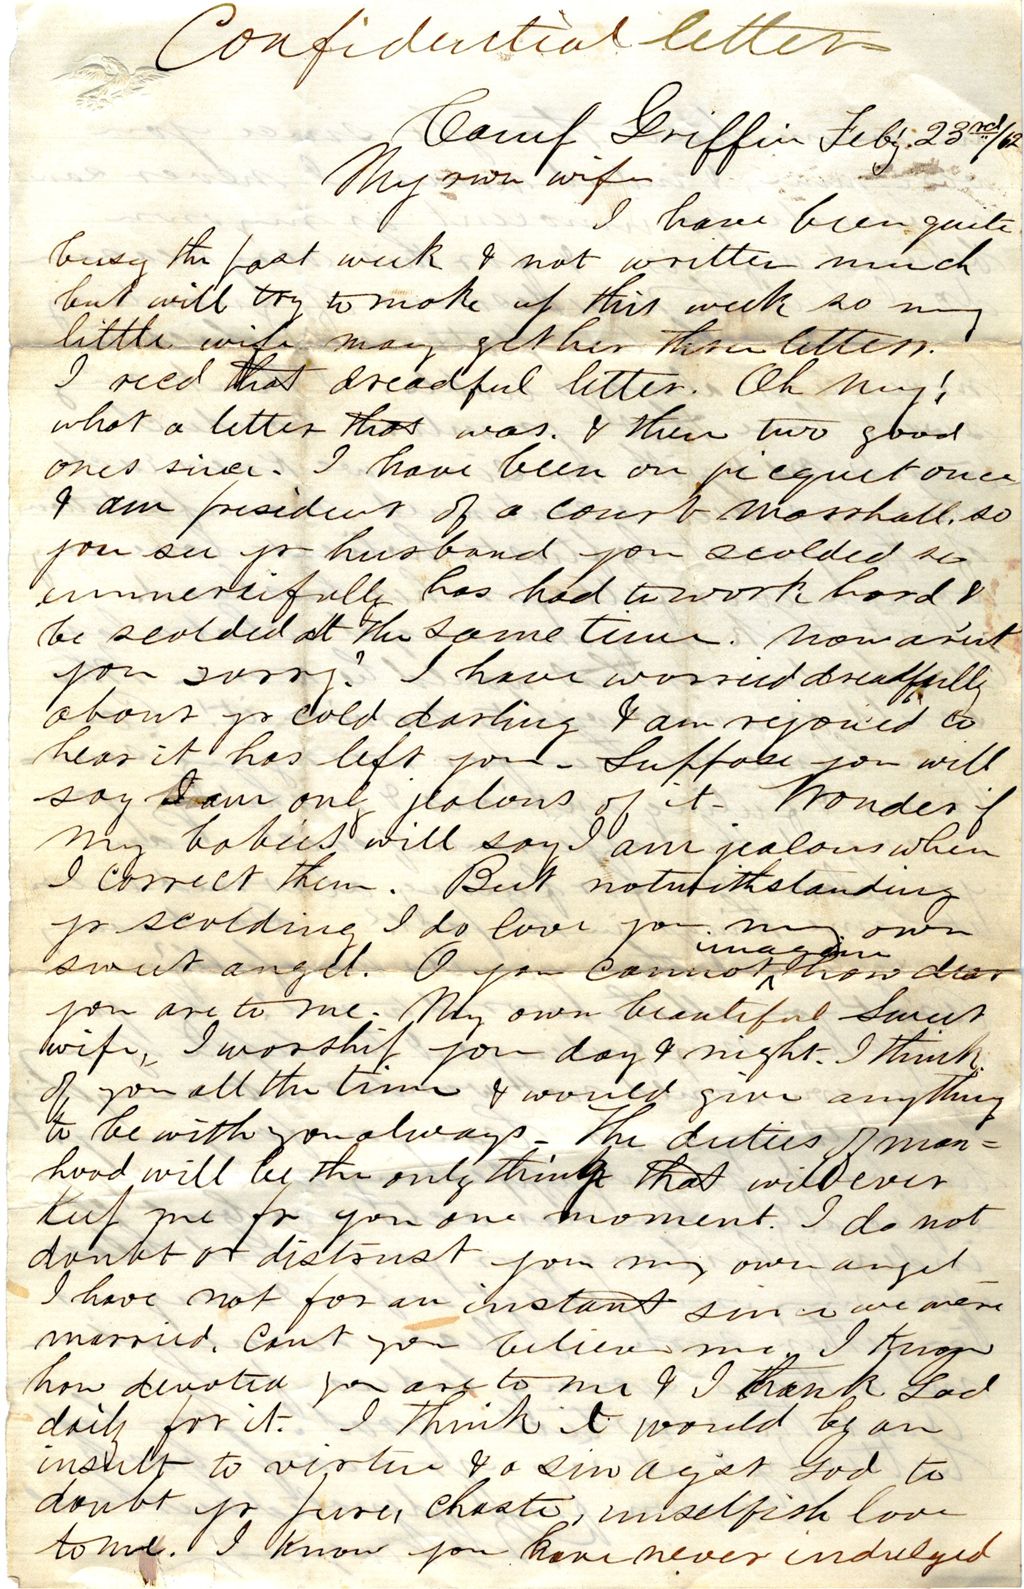 Confidential letter
Camp Griffin Feby. 23rd/62
My own wife
I have been quite
busy the past week & not written much
but will try to make up this week so my
little wife may get her three letters.
I recd that dreadful letter. Oh my!
what a letter that was. & then two good
ones since. I have been on picquet once
& am president of a court Marshall. so
you see yr husband you scolded so
unmercifully has had to work hard &
be scolded at the same time. now ar'nt
you sorry? I have worried dreadfully
about yr cold darling & am rejoiced to
hear it has left you - Suppose you will
say I am only jealous of it - Wonder if
my babies will say I am jealous when
I correct them. But notwithstanding
yr scolding I do love you my own
sweet angel. O you cannot ^imagine how dear
you are to me. My own beautiful sweet
wife, I worship you day & night. I think
of you all the time & would give anything
to be with you always - The duties of man=
hood will be the only thing that will ever
keep me fr you one moment. I do not
doubt or distrust you my own angel
I have not for an instant since we were
married, cant you believe me. I know
how devoted you are to me & I thank God
daily for it. I think it would be an
insult to virtue & a sin agst God to
doubt yr pure, chaste, unselfish love
to me. I know you have never indulged